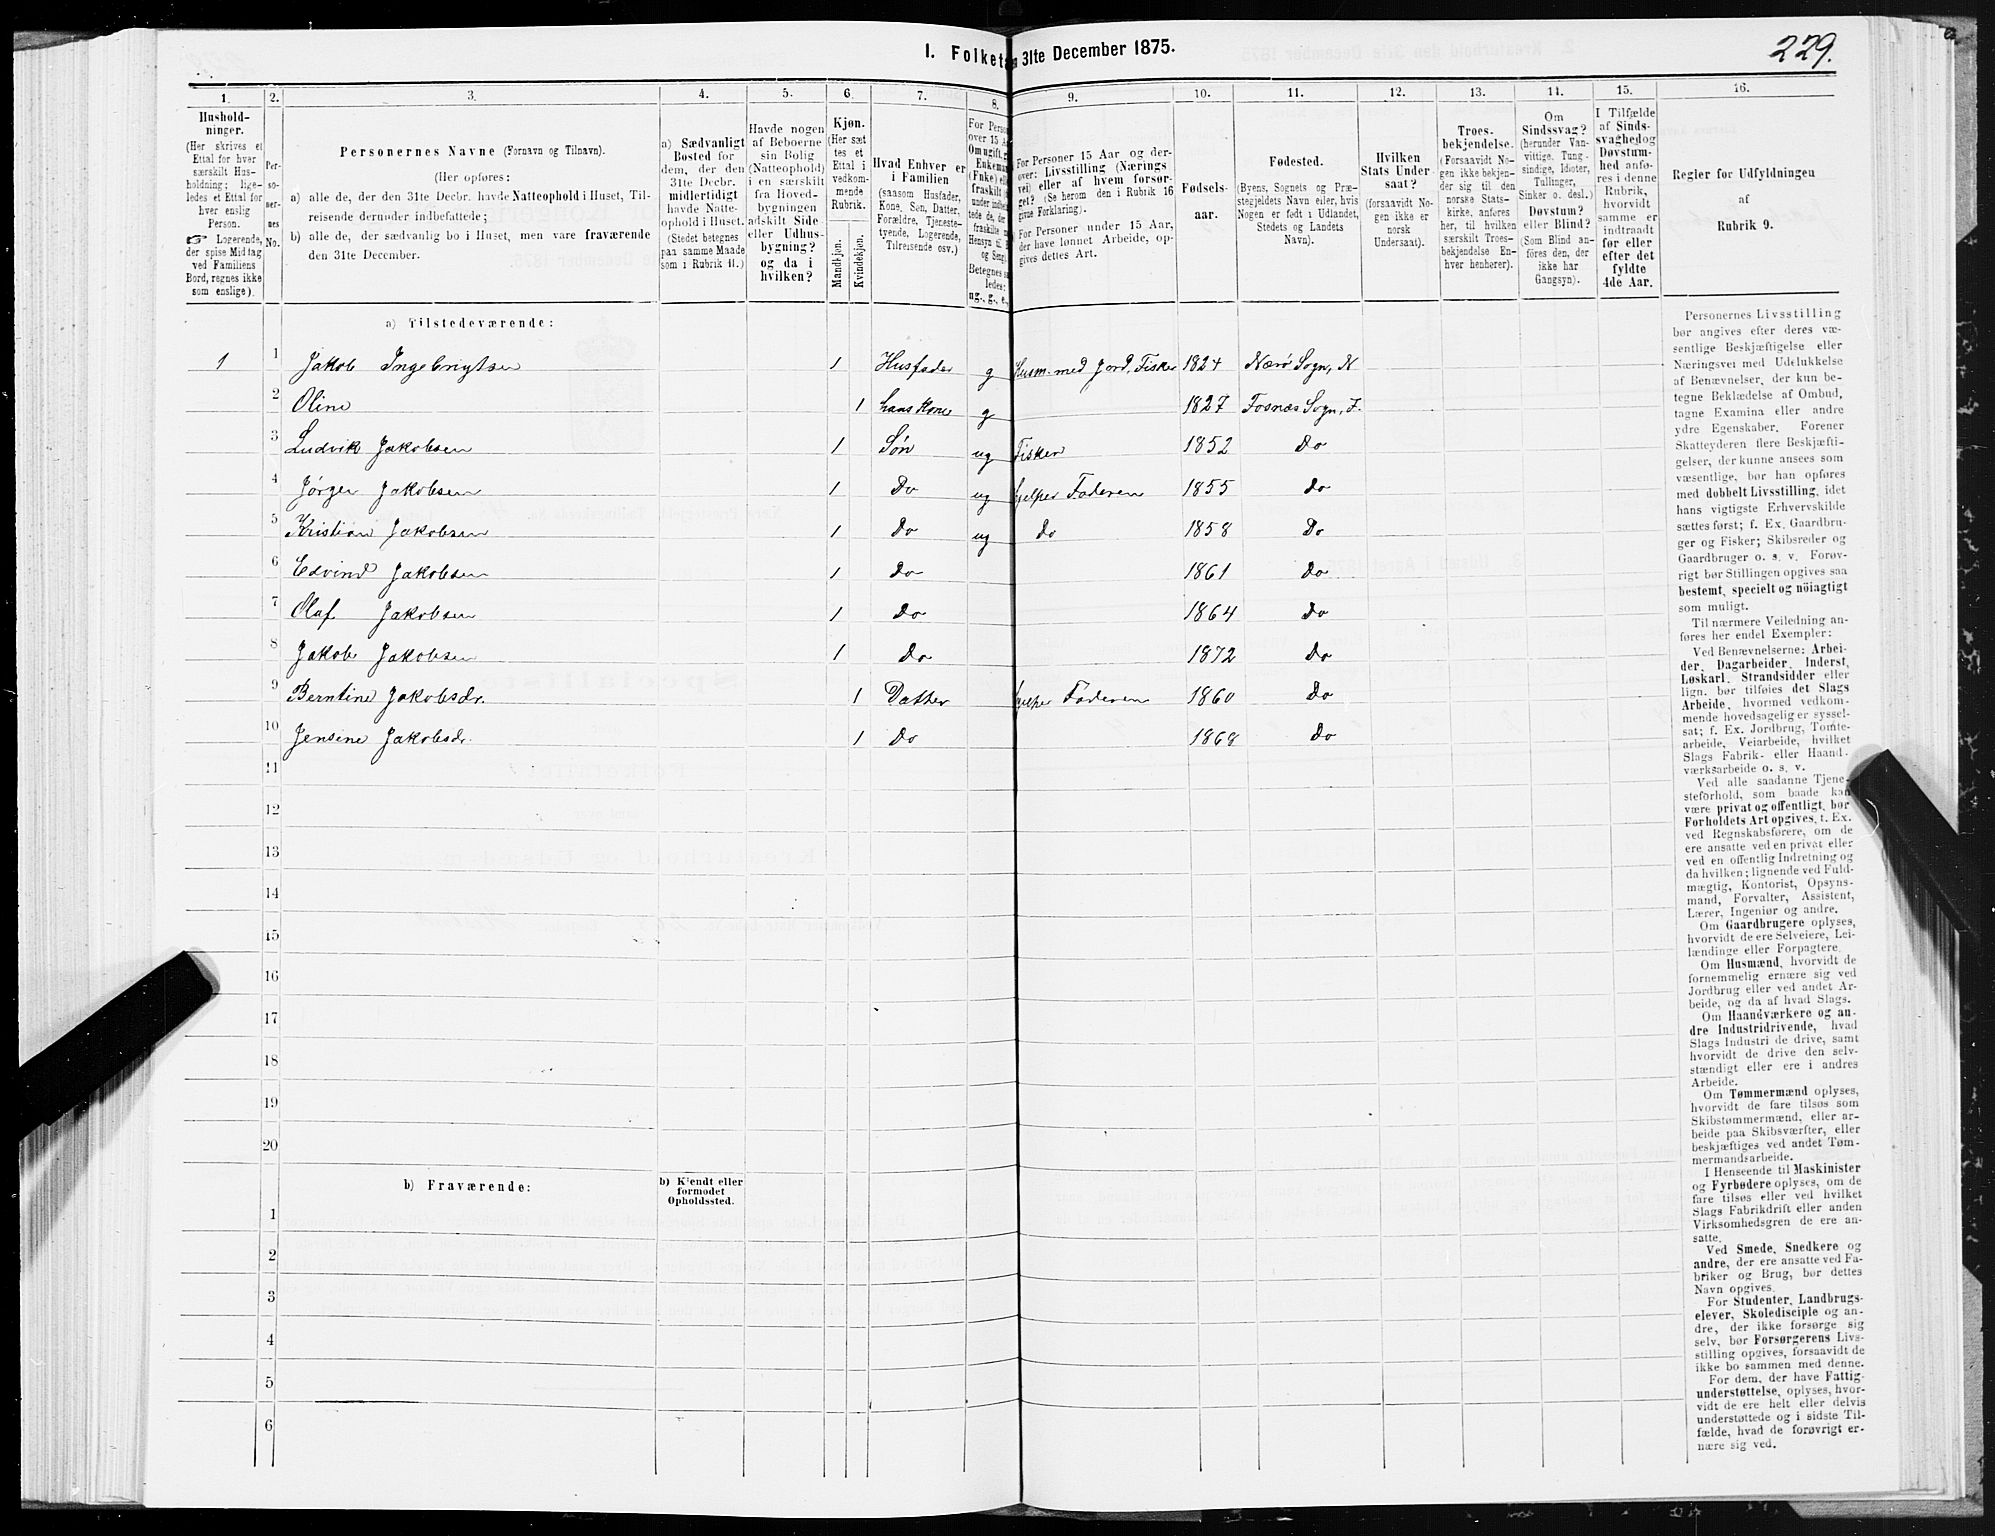 I. Folket 31te December 1875.
229.
1. 2. 3. 4. 5. 6. 7. 8. 9. 10. 11. 12. 13. 14. 15. 16.
Hushold-
ninger.
(Her skrives et
Ettal for hver
særskilt Hus-
holdning; lige-
ledes et Ettal for
hver enslig
Person.
☞ Logerende,
der spise Middag
ved Familiens
Bord, regnes ikke
som enslige).
Per-
so-
ner-
nes
No.
Personernes Navne (Fornavn og Tilnavn).
(Her opføres:
a) alle de, der den 31te Decbr. havde Natteophold i Huset, Til-
reisende derunder indbefattede;
b) alle de, der sædvanlig bo i Huset, men vare fraværende
den 31te December.
a) Sædvanligt
Bosted for
dem, der den
31te Decbr.
midlertidigt
havde Natte-
ophold i Huset.
(Stedet betegnes
paa samme Maade
som i Rubrik 11.)
Havde nogen
af Beboerne
sin Bolig
(Natteophold)
i en særskilt
fra Hoved-
bygningen
adskilt Side-
eller Udhus-
bygning?
og da i
hvilken?
Kjøn.
(Her sæt
tes et
Ettal i
vedkom-
mende
Rubrik.
Mandkjøn.
Kvindekjøn.
Hvad Enhver er
i Familien
(saasom Husfader,
Kone, Søn, Datter,
Forældre, Tjeneste-
tyende, Logerende,
Tilreisende osv.)
For Perso
over 15 A
Om ugift, g
Enkeman
(Enke) elle
fraskilt
Betegnes s
ledes:
ug., g., e.,
For Personer 15 Aar og der-
over: Livsstilling (Nærings
vei) eller af hvem forsør-
get? (Se herom den i Rubrik 16
givne Forklaring).
For Personer under 15 Aar,
der have lønnet Arbeide, op-
gives dettes Art.
Fødsels-
aar.
Fødested.
(Byens, Sognets og Præ-
stegjeldets Navn eller, hvis
Nogen er født i Udlandet,
Stedets og Landets
Navn).
Hvilken
Stats Under
saat?
(forsaavidt No-
gen ikke er
norsk
Undersaat).
Troes-
bekjendelse.
(Forsaavidt No-
gen ikke bekjen-
der sig til den
norske Stats-
kirke, anføres
her, til hvilken
særskilt Troes-
bekjendelse En-
hver henhører).
Om
Sindssvag?
(herunder Van-
vittige, Tung-
sindige, Idioter,
Tullinger,
Sinker o. desl.)
Døvstum?
eller Blind?
(Som Blind an-
føres den, der
ikke har
Gangsyn).
I Tilfælde
af Sinds-
svaghed og
Døvstum-
hed anfø-
res i denne
Rubrik,
hvorvidt
samme er
indtraadt
før eller
efter det
fyldte
4de Aar.
Regler for Udfyldningen
af
Rubrik 9.
a) Tilstedeværende:
1 1 Jakob Ingebrigtsen 1 Husfader g Husm. med Jord, Fisker 1824 Nærø Sogn, N
2 Oline 1 hans Kone g 1827 Fosnæs Sogn, F.
3 Ludvik Jakobsen 1 Søn ug Fisker 1852 Do
4 Jørgen Jakobsen 1 Do ug hjelper Faderen 1855 do
5 Kristian Jakobsen 1 Do ug do 1858 Do
6 Edvind Jakobsen 1 Do 1861 Do
7 Olaf Jakobsen 1 Do 1864 Do
8 Jakob Jakobsen 1 Do 1872 Do
9 Berntine Jakobsdr. 1 Datter hjelper Faderen 1860 Do
10 Jensine Jakobsdr. 1 Do 1868 Do
11
12
13
14
15
16
17
18
19
20
b) Fraværende:
b) Kjendt eller
formodet
Opholdssted.
1
2
3
4
5
6
Personernes Livsstilling
bør angives efter deres væ-
sentlige Beskjæftigelse eller
Næringsvei med Udelukkelse
af Benævnelser, der kun be-
tegne Beklædelse af Ombud,
tagne Examina eller andre
ydre Egenskaber. Forener
Skatteyderen flere Beskjæfti-
gelser, der kunne ansees som
væsentlige, bør han opføres
med dobbelt Livsstilling, idet
hans vigtigste Erhvervskilde
sættes først; f. Ex. Gaardbru-
ger og Fisker; Skibsreder og
Gaardbruger o. s. v. Forøv-
rigt bør Stillingen opgives saa
bestemt, specielt og nöiagtigt
som muligt.
Til nærmere Veiledning an-
føres her endel Exempler:
Ved Benævnelserne: Arbei-
der, Dagarbeider, Inderst,
Løskarl, Strandsidder eller
lign. bør tilføies det Slags
Arbeide, hvormed vedkom-
mende hovedsagelig er syssel-
sat; f. Ex. Jordbrug, Tomte-
arbeide, Veiarbeide, hvilket
Slags Fabrik- eller Haand-
værksarbeide o. s. v.
Ved alle saadanne Tjene-
steforhold, som baade kan
være privat og offentligt, bør
Forholdets Art opgives, t. Ex.
ved Regnskabsførere, om de
ere ansatte ved en privat eller
ved en offentlig Indretning og
da hvilken; lignende ved Fuld-
mægtig, Kontorist, Opsyns-
mand, Forvalter, Assistent,
Lærer, Ingeniør og andre.
Om Gaardbrugere oplyses,
hvorvidt de ere Selveiere, Lei-
lændinge eller Forpagtere.
Om Husmænd, hvorvidt de
fornemmelig ernære sig ved
Jordbrug eller ved andet Ar-
beide, og da af hvad Slags.
Om Haandværkere og an-
dre Industridrivende, hvad
Slags Industri de drive, samt
hvorvidt de drive den selv-
stændigt eller ere i andres
Arbeide.
Om Tømmermænd oplyses,
hvorvidt de fare tilsøs som
Skibstømmermænd, eller ar-
beide paa Skibsværfter, eller
beskjæftiges ved andet Tøm-
mermandsarbeide.
I Henseende til Maskinister
og Fyrbødere oplyses, om de
fare tilsøs eller ved hvilket
Slags Fabrikdrift eller anden
Virksomhedsgren de ere an-
satte.
Ved Smede, Snedkere og
andre, der ere ansatte ved Fa-
briker og Brug, bør dettes
Navn opgives.
For Studenter, Landbrugs-
elever, Skoledisciple og an-
dre, der ikke forsørge sig
selv, bør Forsørgerens Livs-
stilling opgives, forsaavidt de
ikke bo sammen med denne.
For dem, der have Fattig-
understøttelse, oplyses, hvor-
vidt de ere helt eller delvis
understøttede og i sidste Til-
fælde, hvad de forøvrigt er-
nære sig ved.